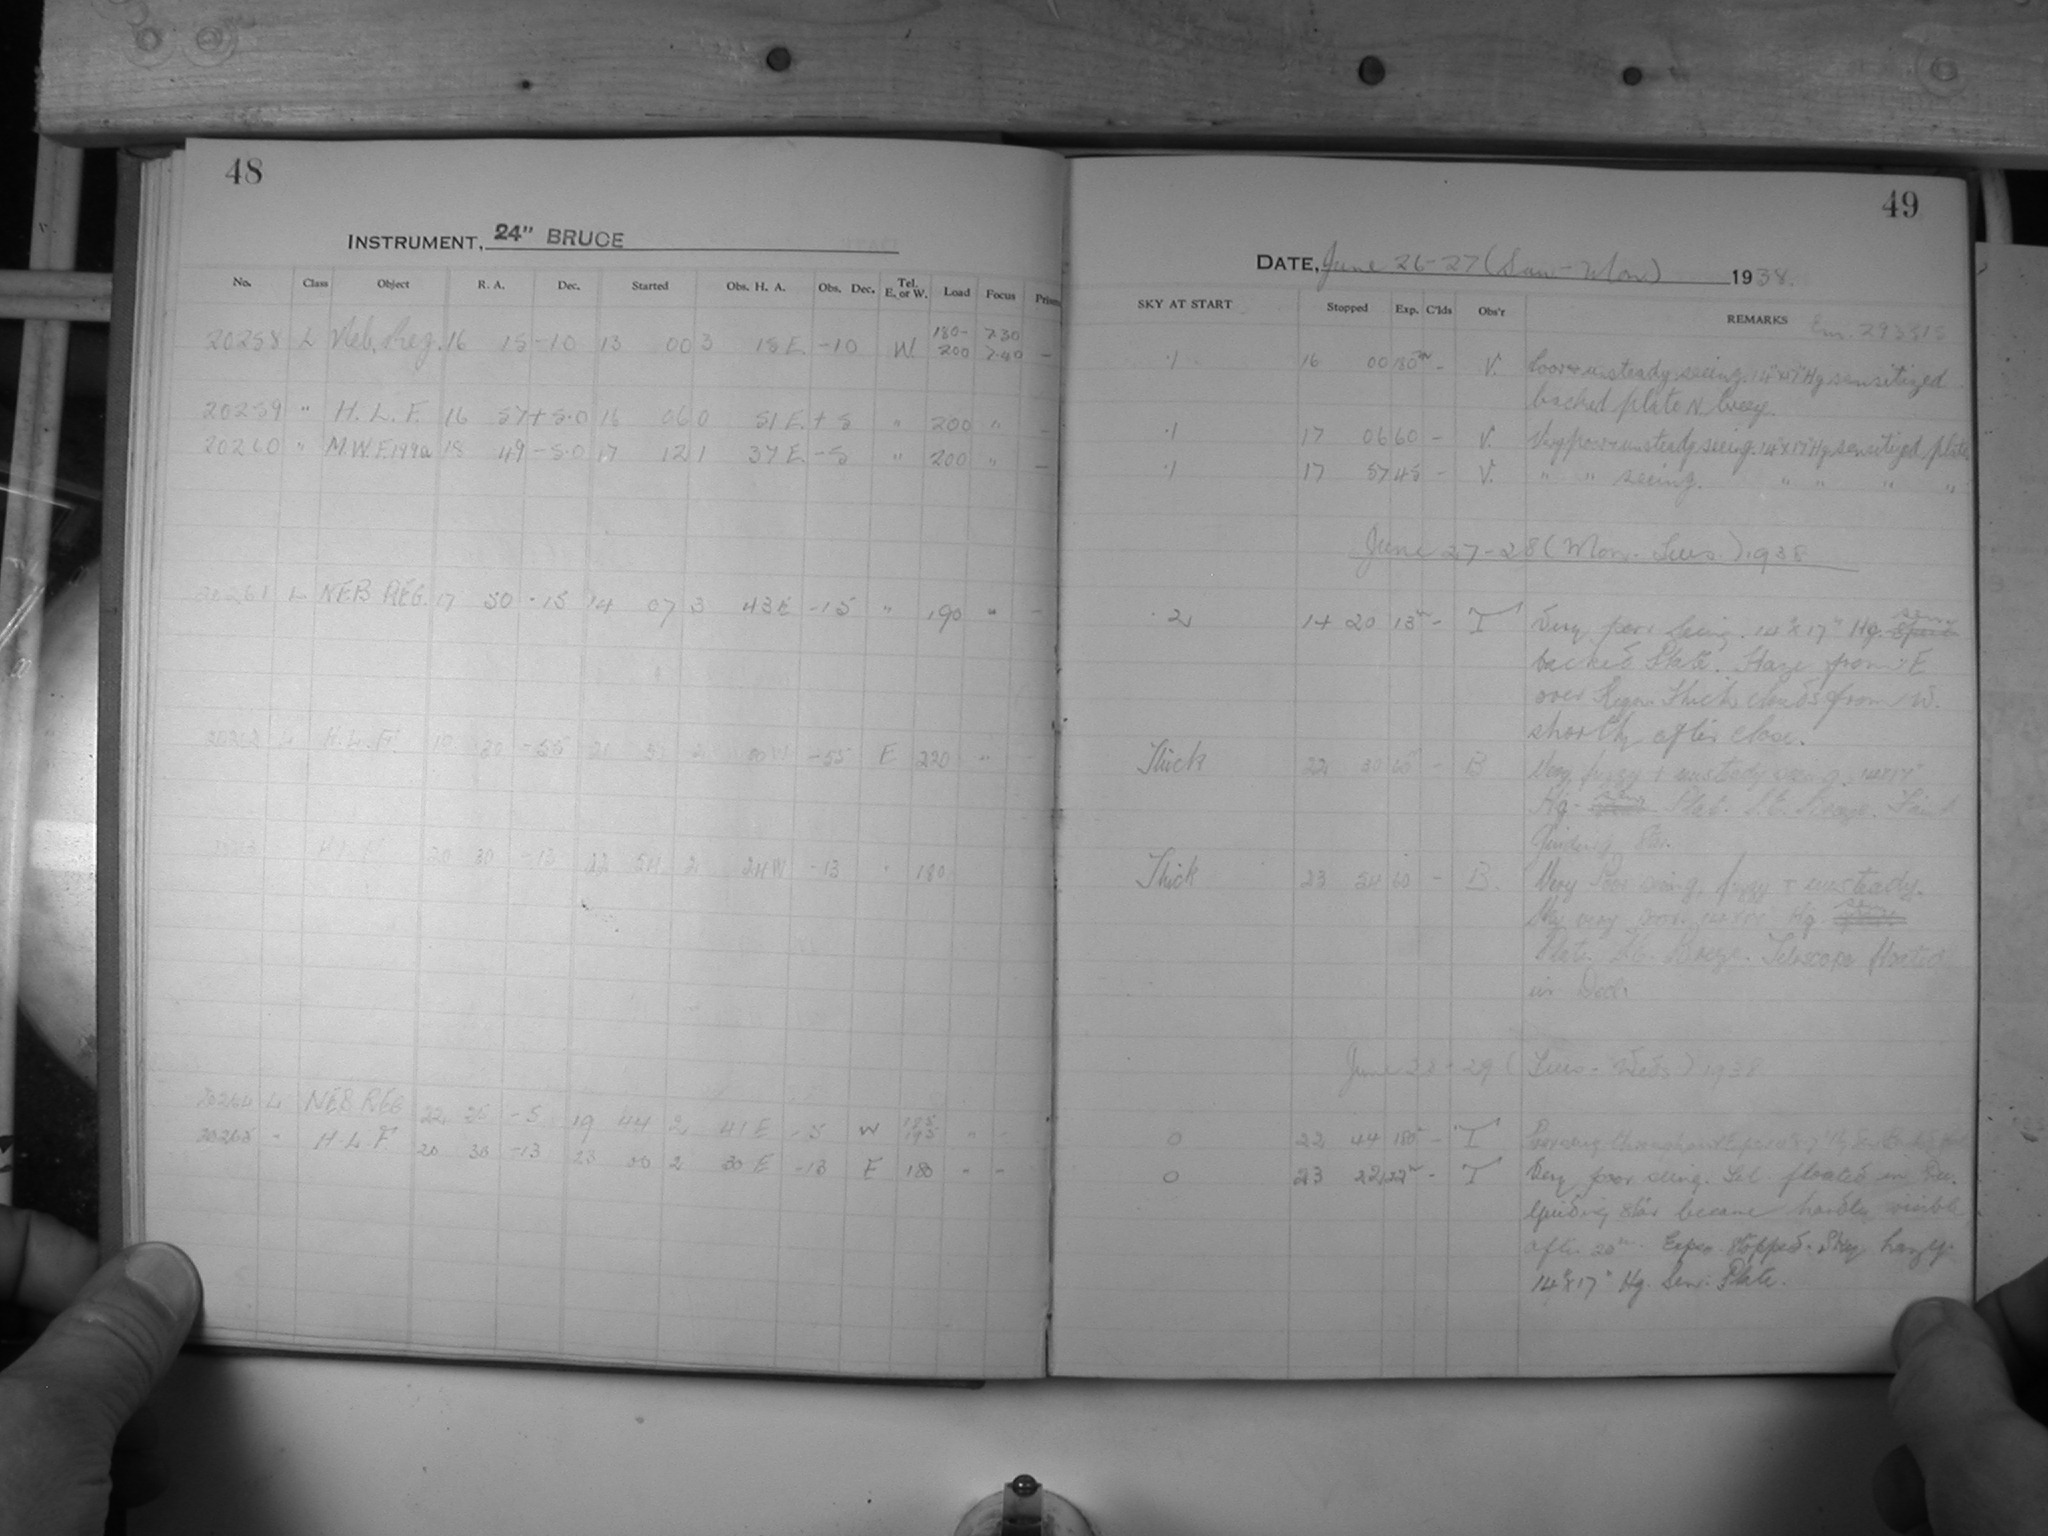 48
INSTRUMENT, 24" BRUCE
No. Class Object R. A. Dec. Started Obs. H. A. Obs. Dec. Tel. E. or W. Load Focus
20258 L Neb. Reg. 16 15 -10 13 00 3 15 E. -10 W. 180-200 –
20259 " H. L. F. 16 57 +5.0 16 06 0 51 E. +5 " 200 " –
20260 " M.W.F. 199a 18 49 -5.0 17 12 1 37 E. -5 " 200 " –
20261 L NEB REG. 17 50 -15 14 07 3 43 E -15 " 190 " –
20262 L H.L.F. -55 2 W -55 E 220 "
H.L.F. 20 30 -13 22 54 2 24 W -13 " 180
20264 L NEB REG 22 25 -5 19 44 2 41 E -5 W 185 195 " –
20265 " H.L.F. 20 30 -13 23 00 2 30 E -13 E 180 " –
49
DATE, June 26-27 (Sun-Mon) 1938.
SKY AT START Stopped Exp. C'lds Obs'r REMARKS
.1 16 00 180m – V. Poor & unsteady seeing. 14"x17" Hg sensitized
backed plate N breeze.
.1 17 06 60 – V. Very poor & unsteady seeing. 14"x17" Hg sensitized plate
.1 17 57 45 – V. " " seeing. " " " "
June 27-28 (Mon-Tues.) 1938
.2 14 20 13m – T Very poor seeing. 14"x17" Hg. sens
backed Plate. Haze from E
over Region. Thick clouds from W.
shortly after close.
Thick 22 60 – B Very fuzzy + unsteady seeing. 14x17"
Hg. Plate. S.E. Breeze. Faint
Guiding Star.
Thick 23 54 60 – B. Very Poor seeing, fuzzy + unsteady.
Sky very poor. 14x17" Hg.
Plate. S.E. Breeze. Telescope floated
in Dec.
June 28-29 (Tues-Weds) 1938
0 22 44 180m – T Poor seeing throughout Expo.
0 23 22 22m – T Very poor seeing. Tel. floated in Dec.
Guiding star became hardly visible
after 20m. Expo. stopped. Sky hazy.
14"x17" Hg. Sens. Plate.